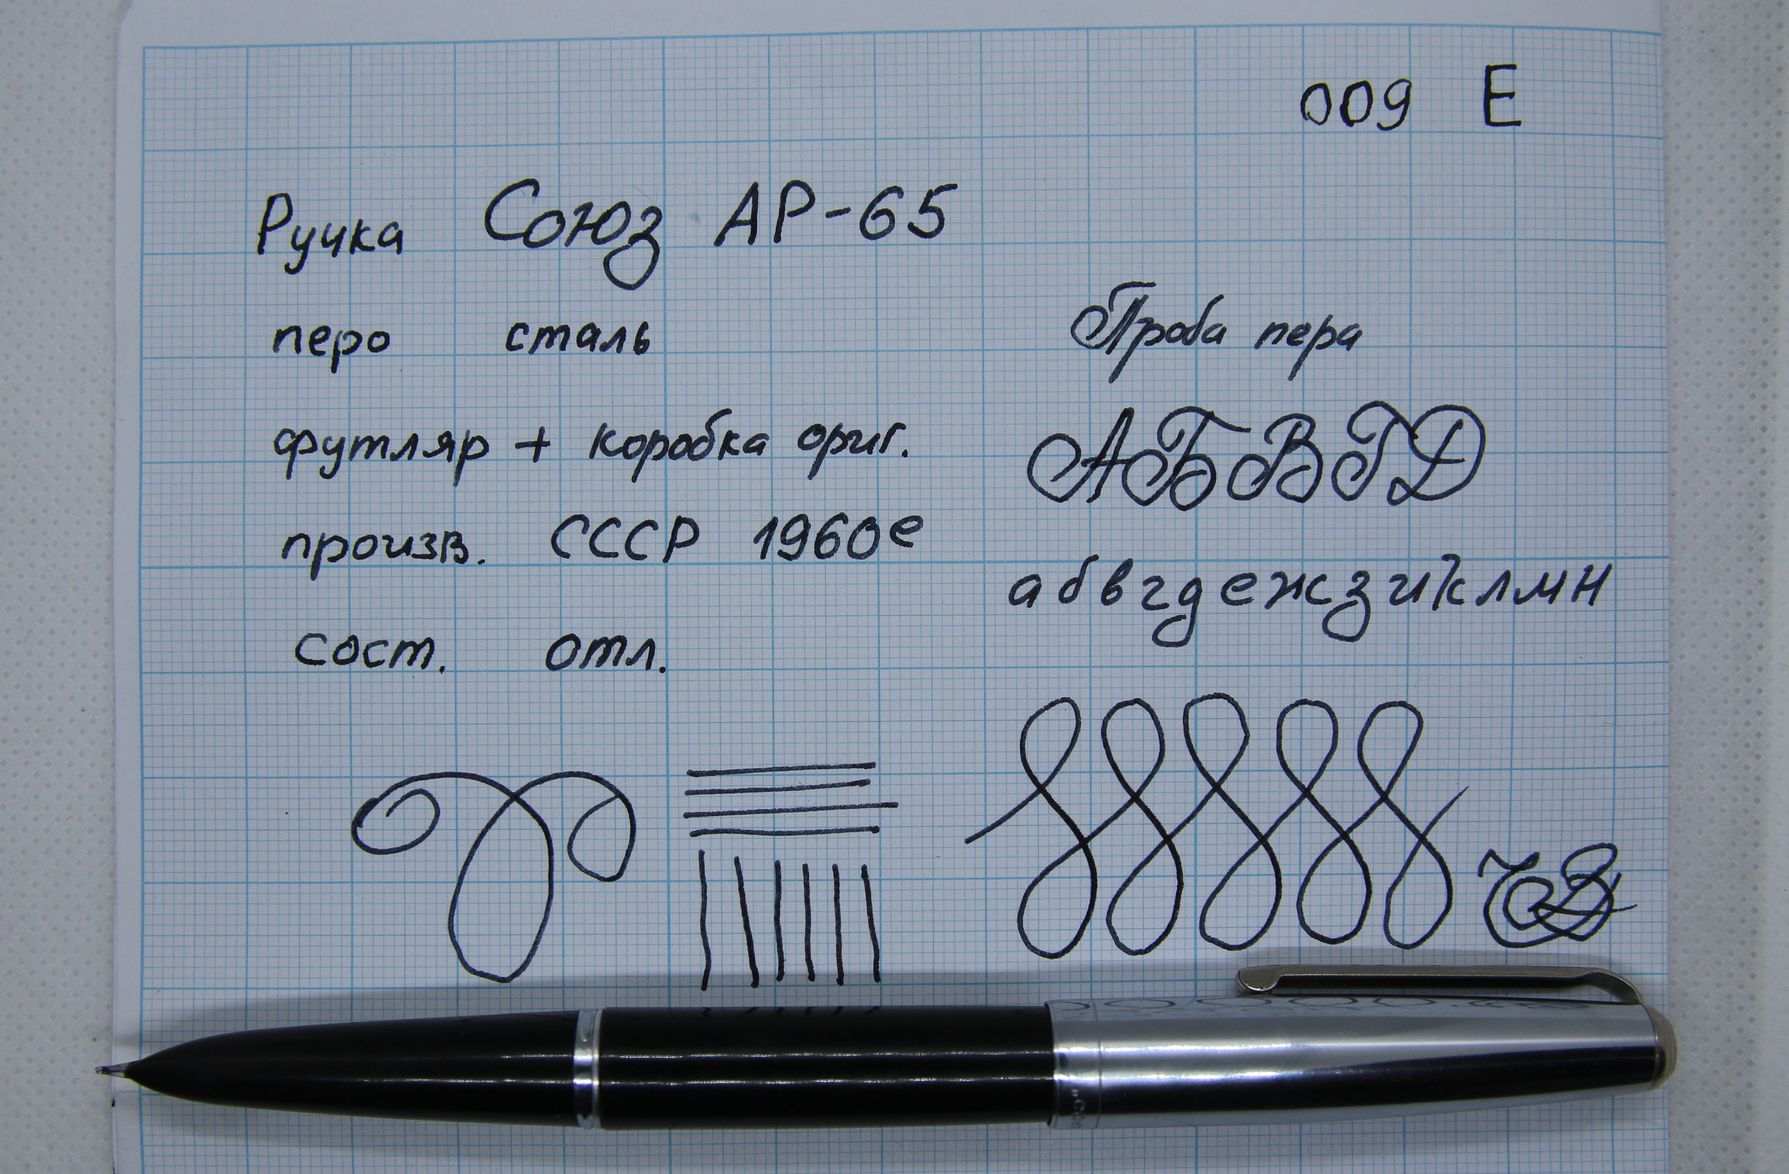 009 Е
Ручка Союз АР-65
перо сталь
футляр + коробка ориг.
произв. СССР 1960е
сост. отл.
Проба пера
АБВГД
абвгдежзиклмн